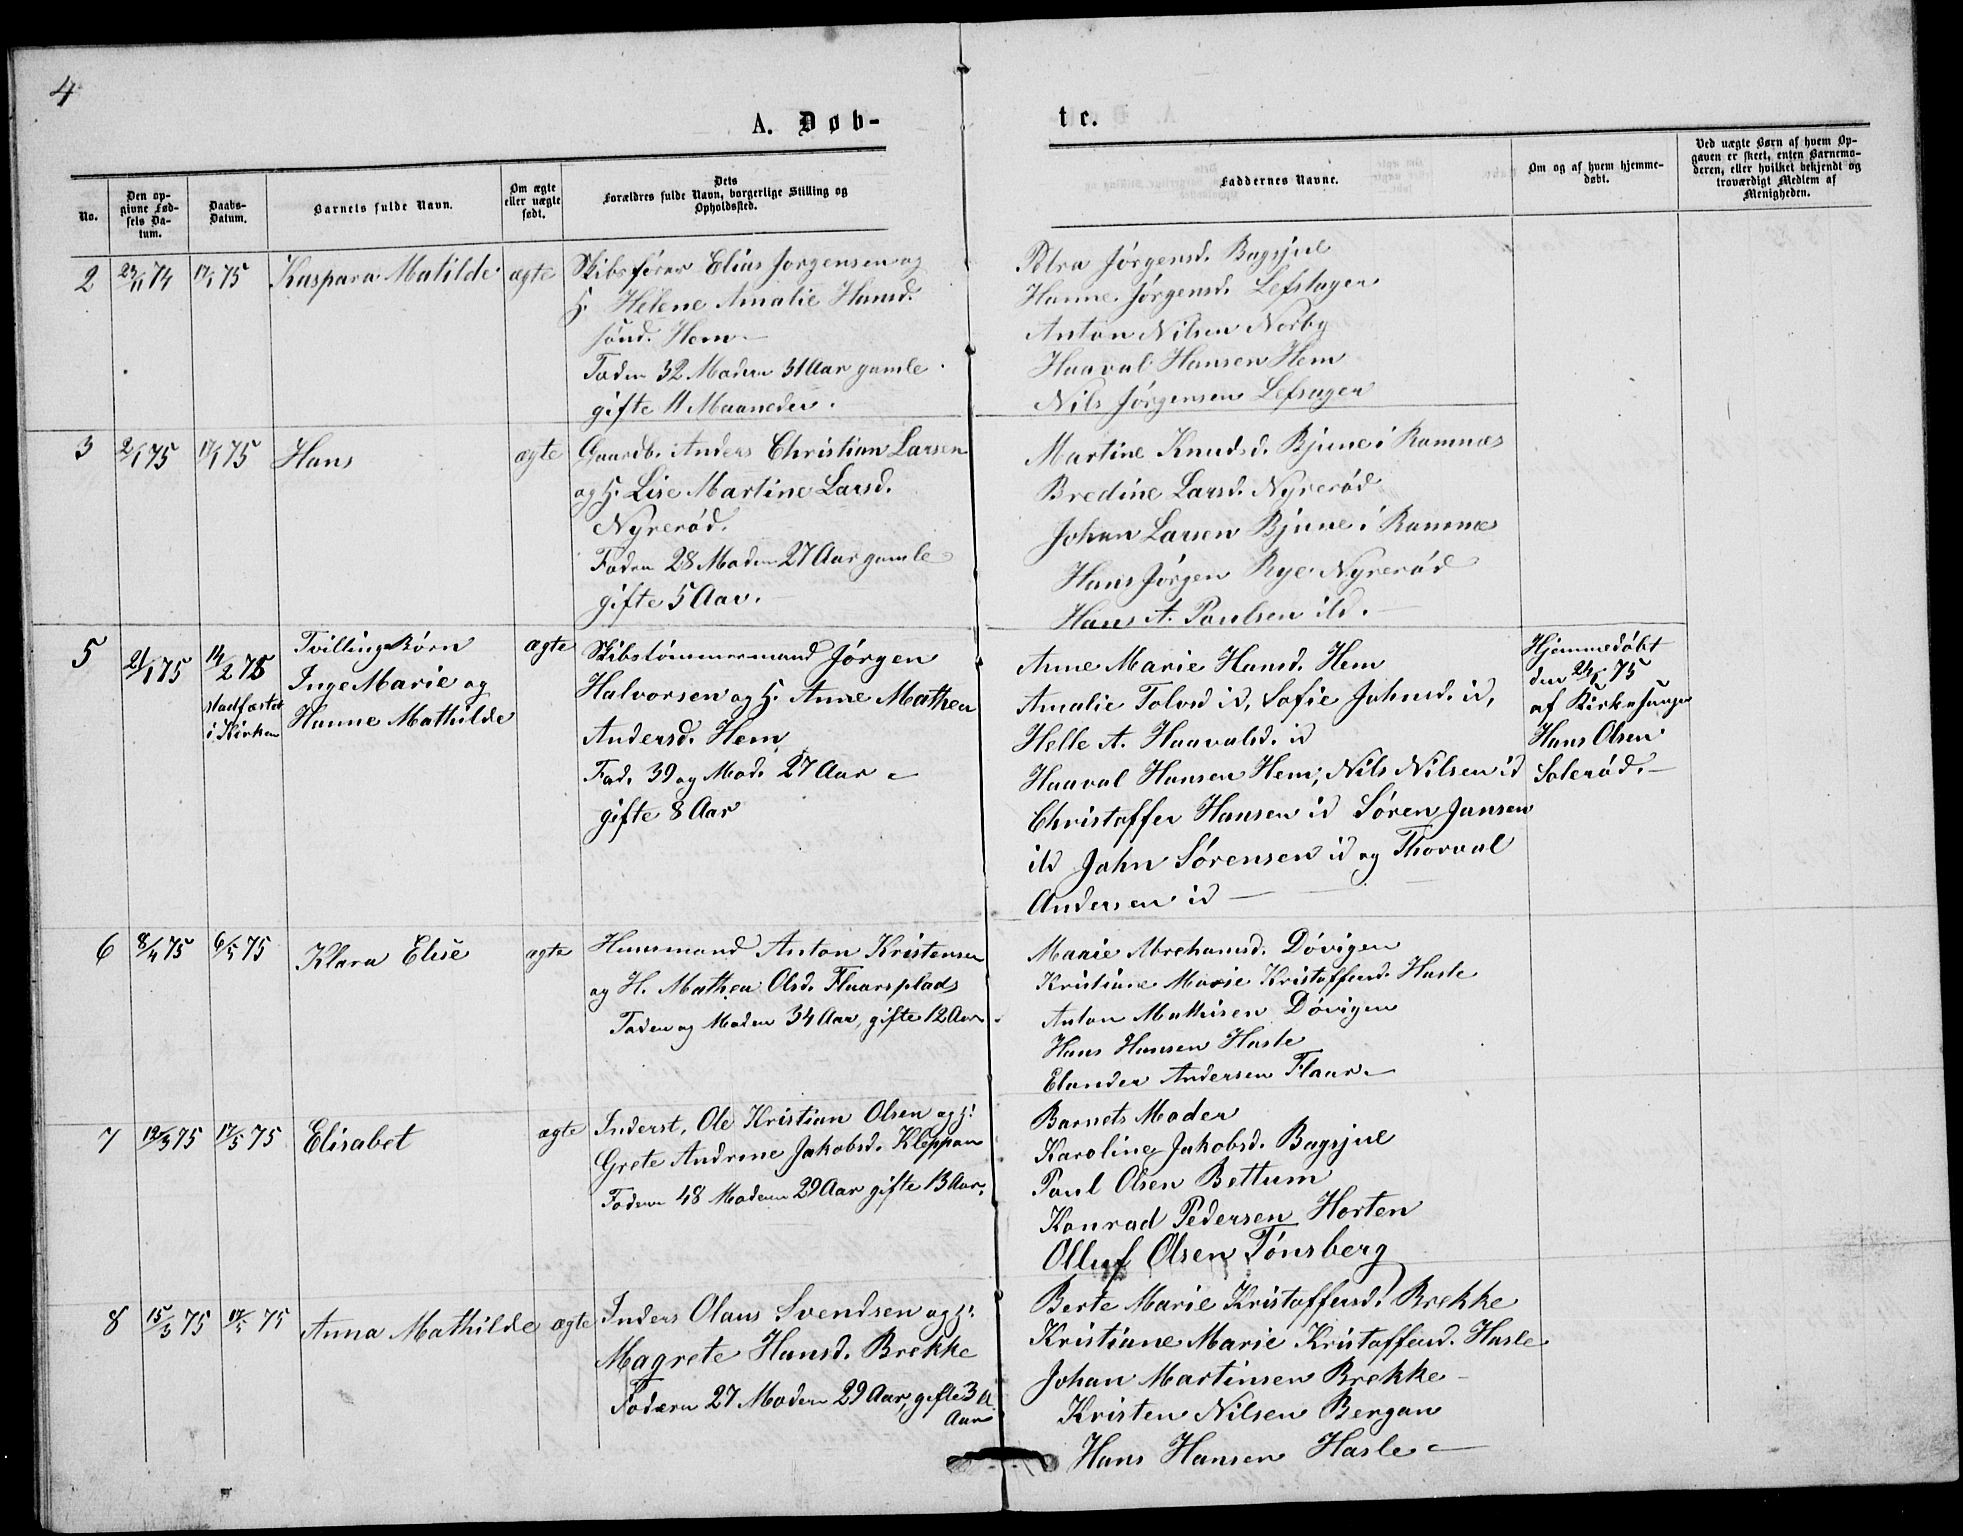 4
A. Døb-
te.
No.
Den op-
givne Fød-
sels Da-
tum.
Daabs-
Datum.
Barnets fulde Navn.
Om ægte
eller uægte
født.
Dets
Forældres fulde Navn, borgerlige Stilling og
Opholdssted.
Faddernes Navne.
Om og af hvem hjemme-
døbt.
Ved uægte Børn af hvem Op-
gaven er skeet, enten Barnemo-
deren, eller hvilket bekjendt og
troværdigt Medlem af
Menigheden.
2 29/11 74 17/1 75 Kaspara Matilde ægte
Skibsfører Elias Jorgensen og
H. Helene Amalie Hansd.
sønd. Hem
Faden 32 Moderen 31 Aar gamle
gifte 11 Maaneder.
Petra Jørgensd. Bagsjul
Hanne Jørgensd. Lefstagen
Anton Nilsen Norby
Haaval Hansen Hem
Nils Jørgensen Lefsagen
3 2/1 75 17/1 75 Hans ægte
Gaardb. Anders Christian Larsen
og H. Lise Martine Larsd.
Nyrerød.
Faden 28 Moden 27 Aar gamle
gifte 5 Aar.
Martine Knudsd. Bjune i Ramnæs
Bredine Larsd. Nyrerød
Johan Larsen Bjune i Ramnæs
Hans Jørgen Rye Nyrerød
Hans A. Paulsen ibd.
5 21/1 75 14/2 75
stadfæstet
i Kirken
Tvillingbørn
Inge Marie og
Hanne Mathilde
ægte
Skibstømmermand Jørgen
Halvorsen og H. Anne Mathea
Andersd. Hem
Fad. 39 og Mod. 27 Aar
gifte 8 Aar
Anne Marie Hansd. Hem
Amalie Tolvsd id, Sofie Johnsd. id,
Helle A. Haavalsd. id
Haaval Hansen Hem, Nils Nilsen id
Christoffer Hansen id Søren Jansen
ibd John Sørensen id og Thorval
Andersen id
Hjemmedøbt
den 24/1 75
af Kirkesanger
Hans Olsen
Solerød.
6 8/4 75 6/5 75 Klara Elise ægte
Huusmand Anton Kristensen
og H. Mathea Olsd. Flaarsplads
Faden og Moden 34 Aar, gifte 12 Aar
Marie Abrehamsd. Døvigen
Kristiane Marie Kristoffersd. Hasle
Anton Mathisen Døvigen
Hans Hansen Hasle
Elander Andersen Flaar
7 19/3 75 17/5 75 Elisabet ægte
Inderst, Ole Kristian Olsen og H.
Grete Andrine Jakobsd. Kleppan
Faderen 48 Moderen 29 Aar gifte 13 Aar.
Barnets Moder
Karoline Jakobsd. Bagsjul
Poul Olsen Bettum
Konrad Pedersen Horten
Olluf Olsen Tønsberg
8 15/3 75 17/5 75 Anna Mathilde ægte
Inders Olaus Svendsen og H.
Magrete Hansd. Brekke
Faderen 27 Moderen 29 Aar, gifte 3
Aar
Berte Marie Kristoffersd. Brekke
Kristiane Marie Kristoffersd. Hasle
Johan Martinsen Brekke
Kristen Nilsen Bergan
Hans Hansen Hasle